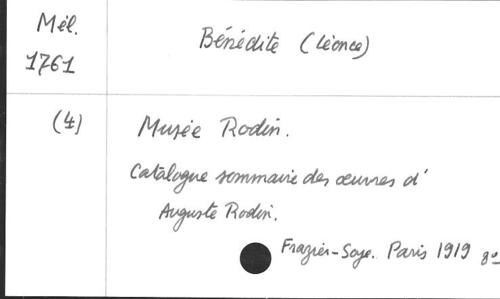 Mél.
1761
Bénédite (Léonce)
(4)
Musée Rodin.
Catalogue sommaire des œuvres d'
Auguste Rodin.
Frazier-Soye. Paris 1919 8°